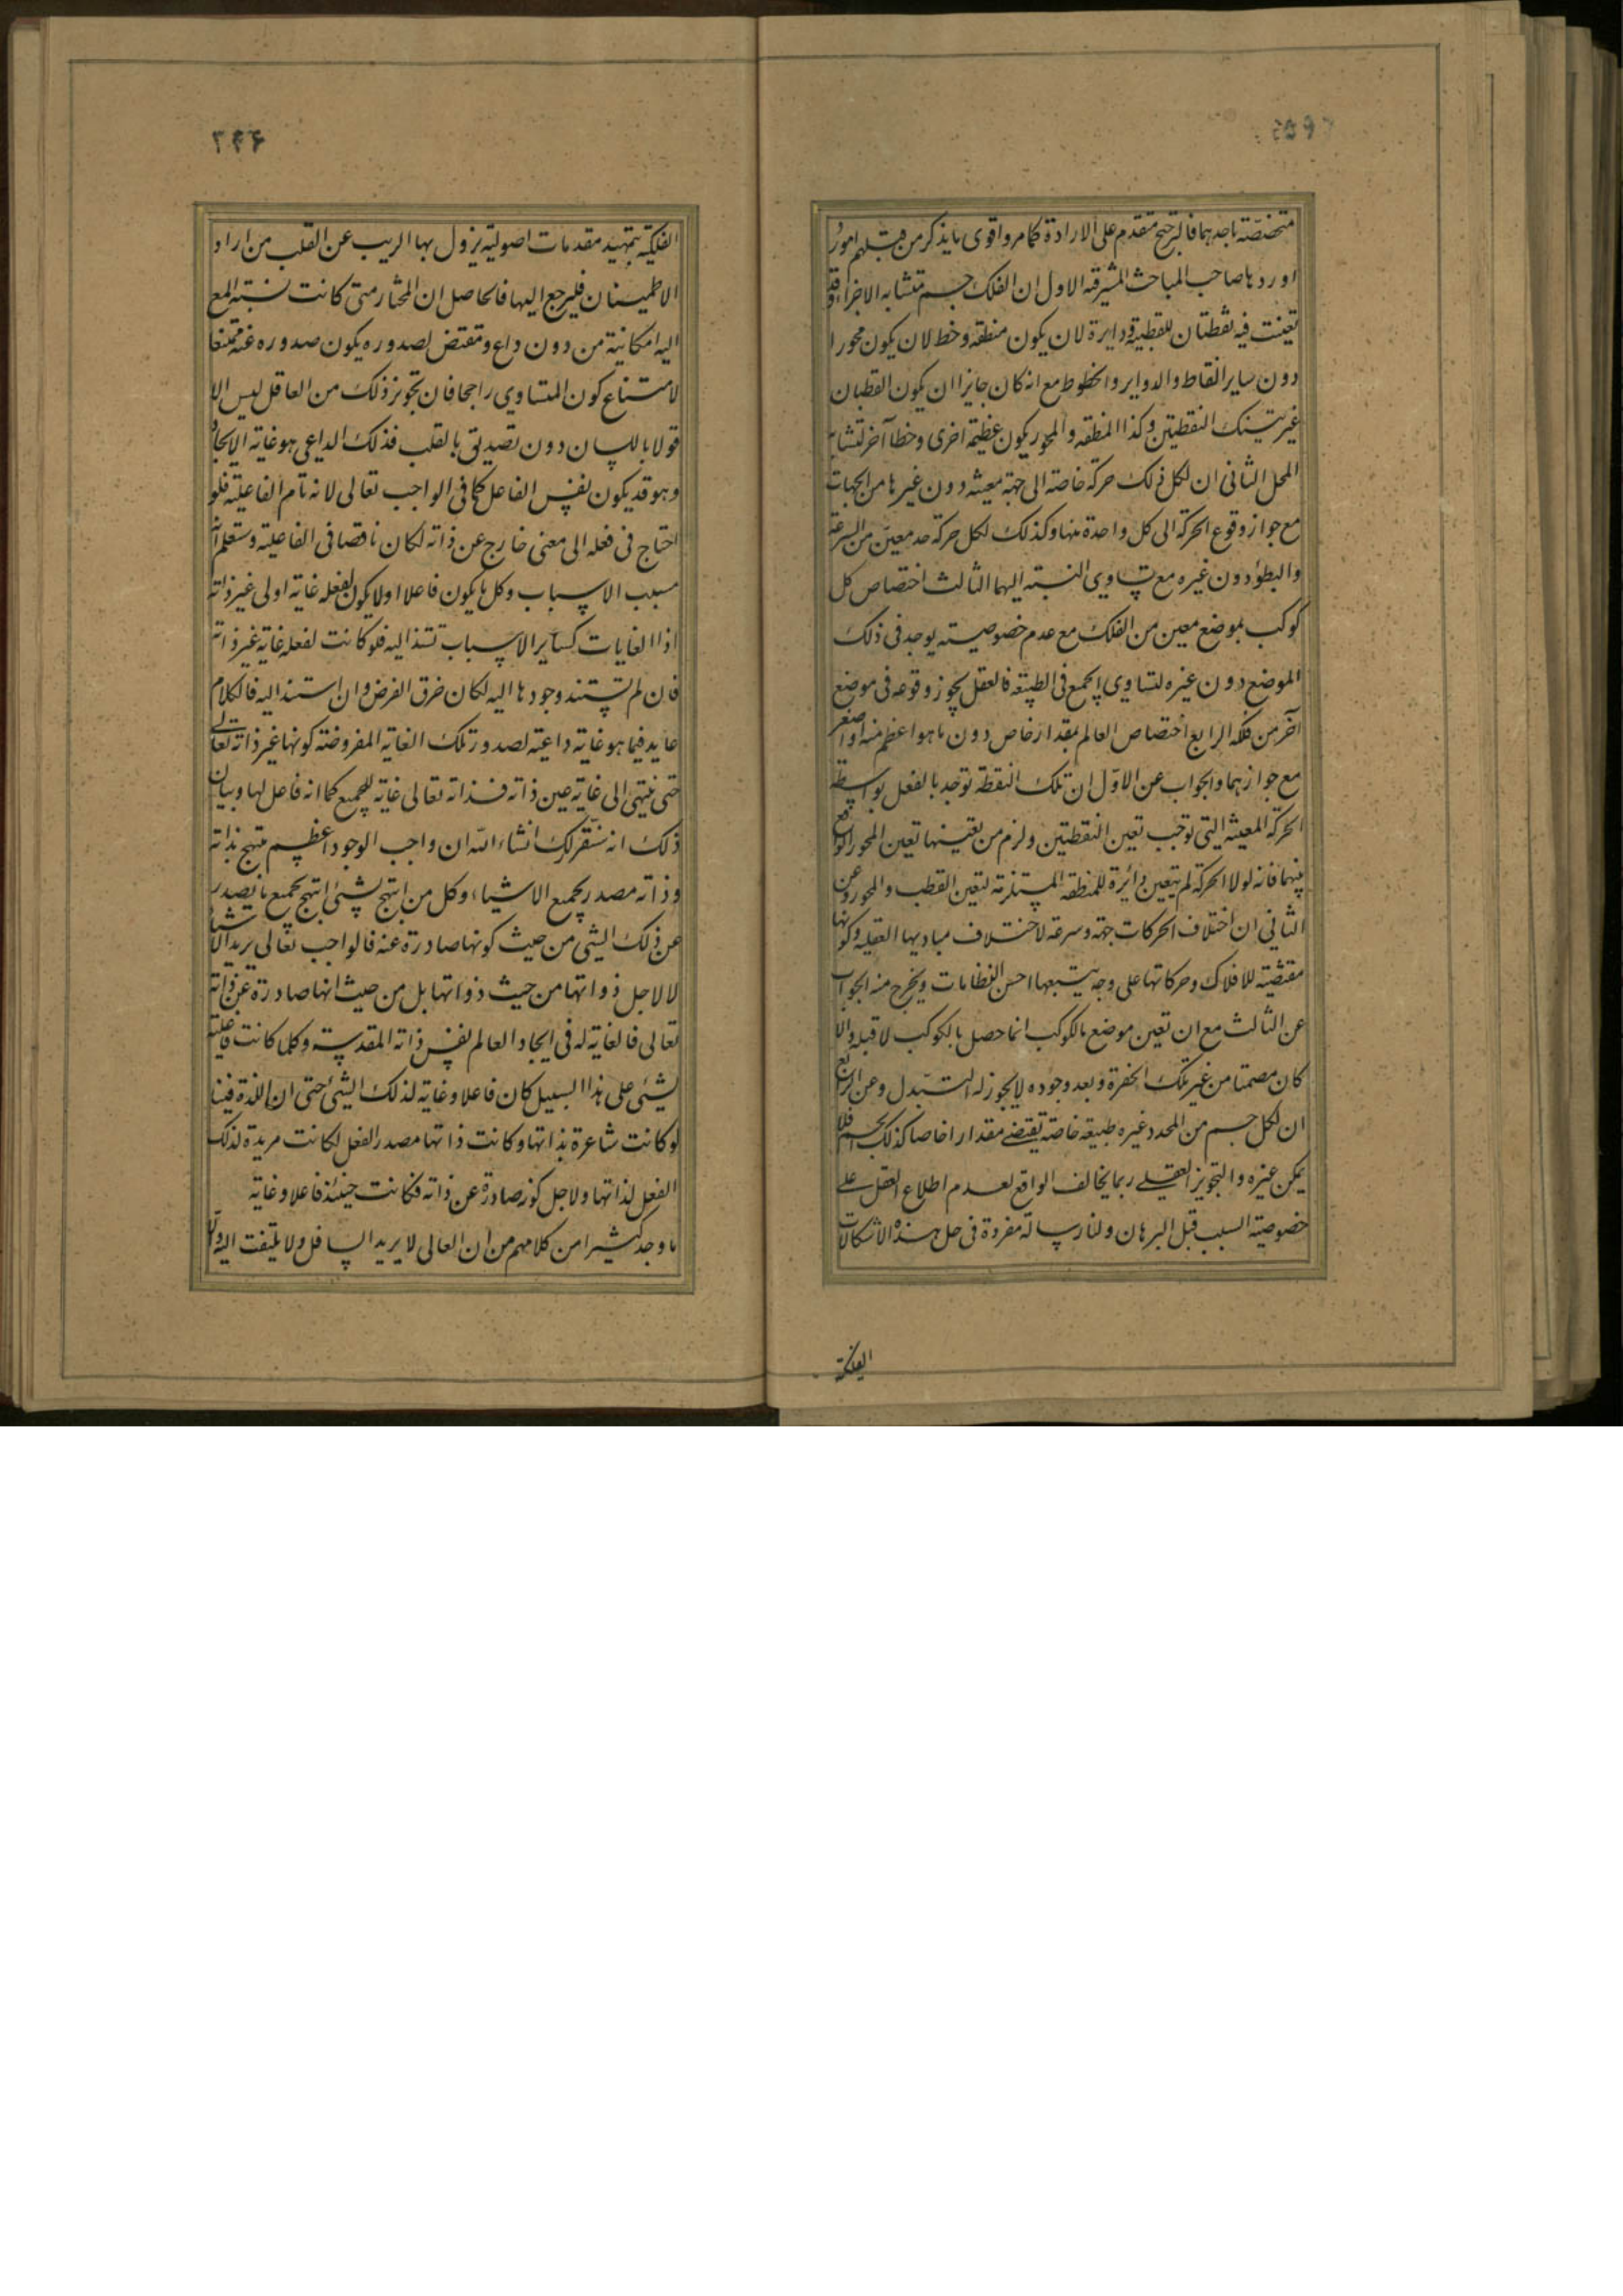 متخصصة باحدهما فالترجيح مقدم على الارادة كما مر واقوى ما يذكر من قبلهم امور
اوردها صاحب المباحث المشرقيه الاول ان الفلك جسم متشابه الاجزاء وقد
تعينت فيه نقطتان للقطبية ودايرة لان يكون منطقه وخط لان يكون محورا
دون ساير النقاط والدواير والخطوط مع انه كان جايزا ان يكون القطبان
غير تينك النقطتين وكذا المنطقه والمحور يكون عظيمة اخرى وخطا آخر لتشابه
المحل الثانى ان لكل فلك حركة خاصة الى جهة معينة دون غيرها من الجهات
مع جواز وقوع الحركة الى كل واحدة منها وكذلك لكل حركة حد معين من السرعة
والبطؤ دون غيره مع تساوى النسبة اليهما الثالث اختصاص كل
كوكب بموضع معين من الفلك مع عدم خصوصيته يوجد فى ذلك
الموضع دون غيره لتساوى الجميع فى الطبيعه فالعقل يجوز وقوعه فى موضع
آخر من فلكه الرابع اختصاص العالم بمقدار خاص دون ما هو اعظم منه او اصغر
مع جوازهما والجواب عن الاول ان تلك النقطة توجد بالفعل بواسطة
الحركة المعينة التى توجب تعين النقطتين ولزم من تعينهما تعين المحور الواقع
بينهما فانه لولا الحركة لم يتعين دائرة للمنطقه المستلزمة لتعين القطب والمحور وعن
الثانى ان اختلاف الحركات جهة وسرعة لاختلاف مباديها العقليه وكونها
مقتضية للافلاك وحركاتها على وجه يتبعها احسن النظامات ويخرج منه الجواب
عن الثالث مع ان تعين موضع بالكوكب انما حصل بالكوكب لا قبله والا
كان مصمتا من غير تلك الحفرة وبعد وجوده لا يجوز له التبدل وعن الرابع
ان لكل جسم من المحدد غيره طبيعة خاصة تقتضى مقدارا خاصا كذلك الجسم فلا
يمكن غيره والتجويز العقلى ربما يخالف الواقع لعدم اطلاع العقل على
خصوصية السبب قبل البرهان ولنا رسالة مفردة فى حل هذه الاشكالات
الفلكية
٢٤٦
الفلكية بتمهيد مقدمات اصولية يزول بها الريب عن القلب من اراد
الاطمينان فليرجع اليها فالحاصل ان المختار متى كانت نسبته المع
اليه امكانية من دون داع ومقتض لصدوره يكون صدوره عنه ممتنعا
لامتناع كون المتساوى راجحا فان تجويز ذلك من العاقل ليس الا
قولا باللسان دون تصديق بالقلب فذلك الداعى هو غاية الايجاد
وهو قد يكون نفس الفاعل كما فى الواجب تعالى لانه تام الفاعلية فلو
احتاج فى فعله الى معنى خارج عن ذاته لكان ناقصا فى الفاعلية وستعلم انه
مسبب الاسباب وكل ما يكون فاعلا اولا يكون لفعله غاية اولى غير ذاته
اذ الغايات كساير الاسباب تستند اليه فلو كانت لفعله غاية غير ذاته
فان لم تستند وجودها اليه لكان خرق الفرض وان استند اليه فالكلام
عايد فيما هو غاية داعية لصدور تلك الغاية المفروضة كونها غير ذاته تعالى
حتى ينتهى الى غاية عين ذاته فذاته تعالى غاية للجميع كما انه فاعل لها وبيان
ذلك انه سنقرر لك انشاء الله ان واجب الوجود اعظم مبتهج بذاته
وذاته مصدر لجميع الاشياء وكل من ابتهج بشئ ابتهج بجميع ما يصدر
عن ذلك الشئ من حيث كونها صادرة عنه فالواجب تعالى يريد الاشياء
لا لاجل ذواتها من حيث ذواتها بل من حيث انها صادرة عن ذاته
تعالى فالغاية له فى ايجاد العالم نفس ذاته المقدسة وكلما كانت فاعليته
لشئ على هذا السبيل كان فاعلا وغاية لذلك الشئ حتى ان اللذة فينا
لو كانت شاعرة بذاتها وكانت ذاتها مصدر الفعل لكانت مريدة لذلك
الفعل لذاتها ولاجل كونه صادرة عن ذاته فكانت حينئذ فاعلا وغاية
ما وجد كثيرا من كلامهم من ان العالى لا يريد السافل ولا يلتفت اليه